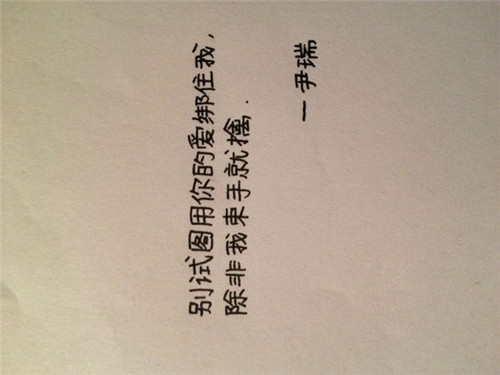 别试图用你的爱绑住我，
除非我束手就擒.
—尹瑞